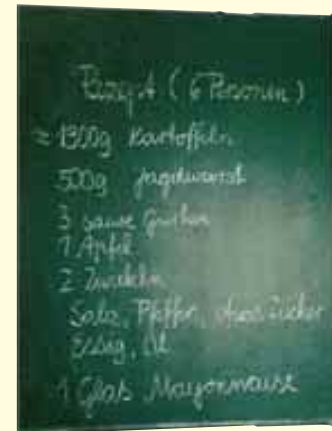 Rezept (6 Personen)
≈ 1300g Kartoffeln
500g Jagdwurst
3 saure Gurken
1 Apfel
2 Zwiebeln
Salz, Pfeffer, etwas Zucker
Essig, Öl
1 Glas Mayonnaise